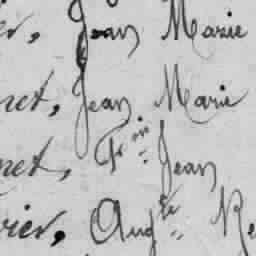 er, Jean Marie
net, Jean Marie
net, Fr^ois Jean
vier, Aug^te Re